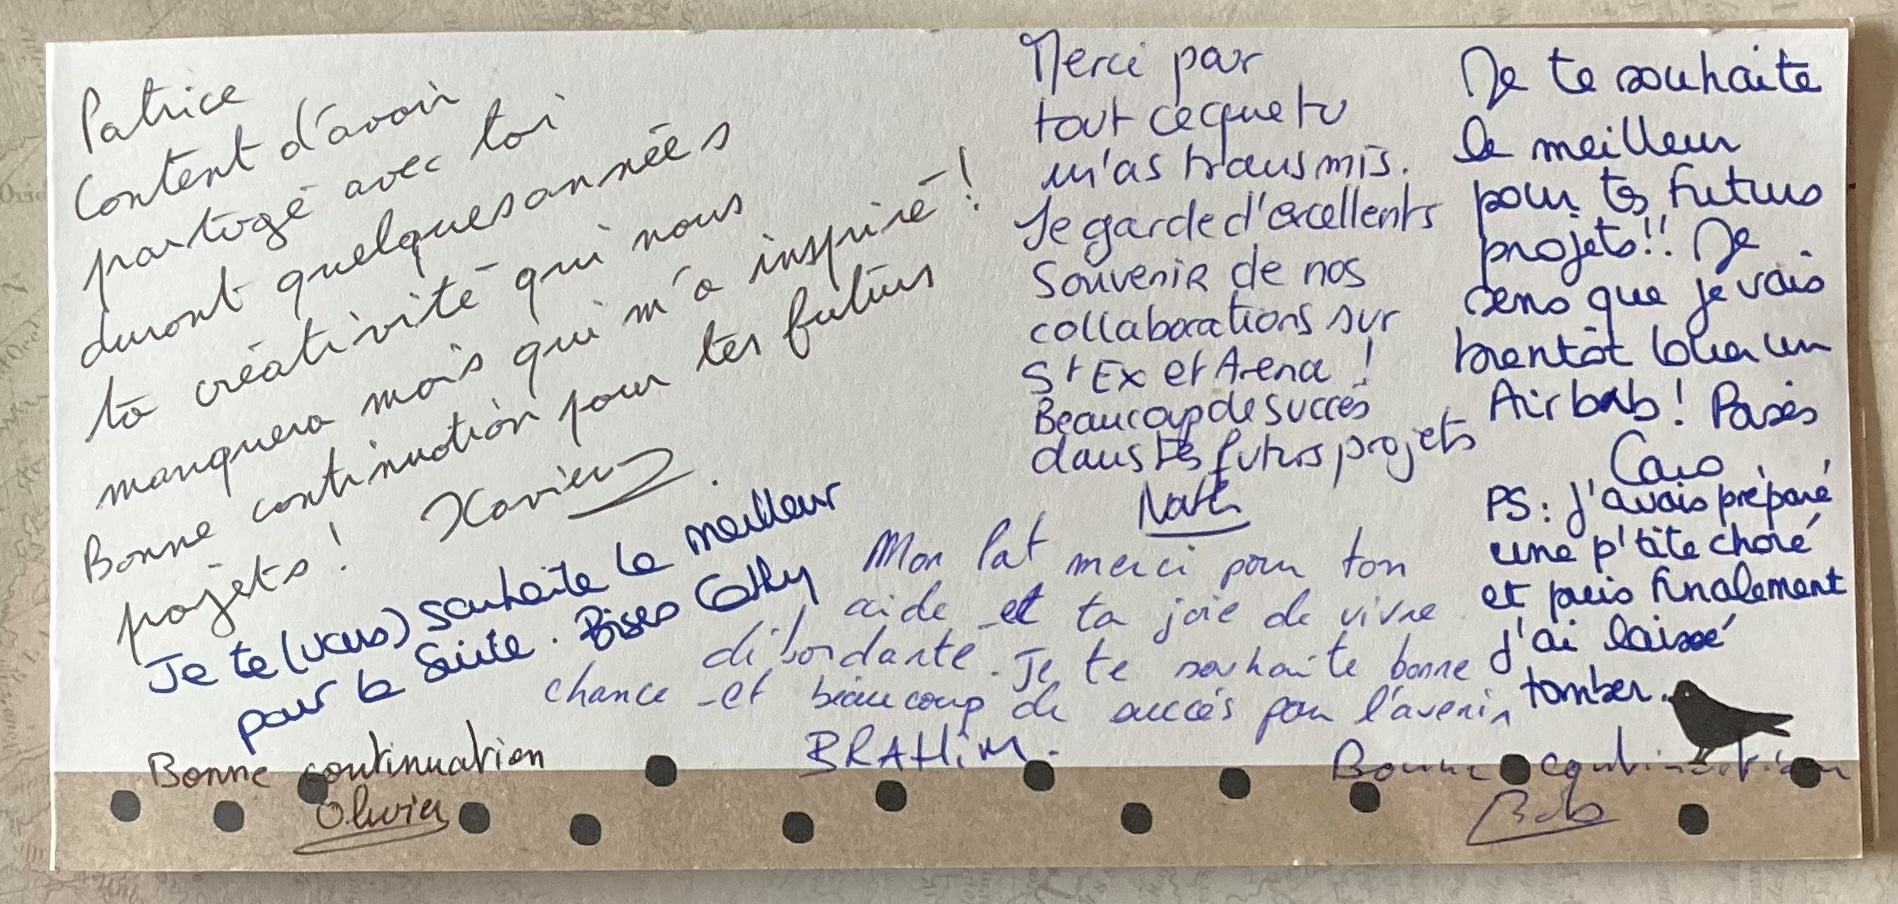 Patrice
Content d'avoir
partagé avec toi
durant quelques années
ta créativité qui nous
manquera mais qui m'a inspiré !
Bonne continuation pour tes futurs
projets ! Xavier
Je te (vous) souhaite le meilleur
pour la suite. Bises Cathy
Bonne continuation
Olivier
Merci pour
tout ce que tu
m'as transmis.
Je garde d'excellents
souvenir de nos
collaborations sur
St Ex et Arena !
Beaucoup de succès
dans tes futurs projets
Nath
Mon Pat merci pour ton
aide et ta joie de vivre
débordante. Je te souhaite bonne
chance et beaucoup de succès pour l'avenir
BRAHIM.
Je te souhaite
le meilleur
pour tes futurs
projets!! Je
sens que je vais
bientôt louer un
Airbnb !
Caro
PS : J'avais préparé
une p'tite choré
et puis finalement
j'ai laissé
tomber.
Bonne continuation
Bob